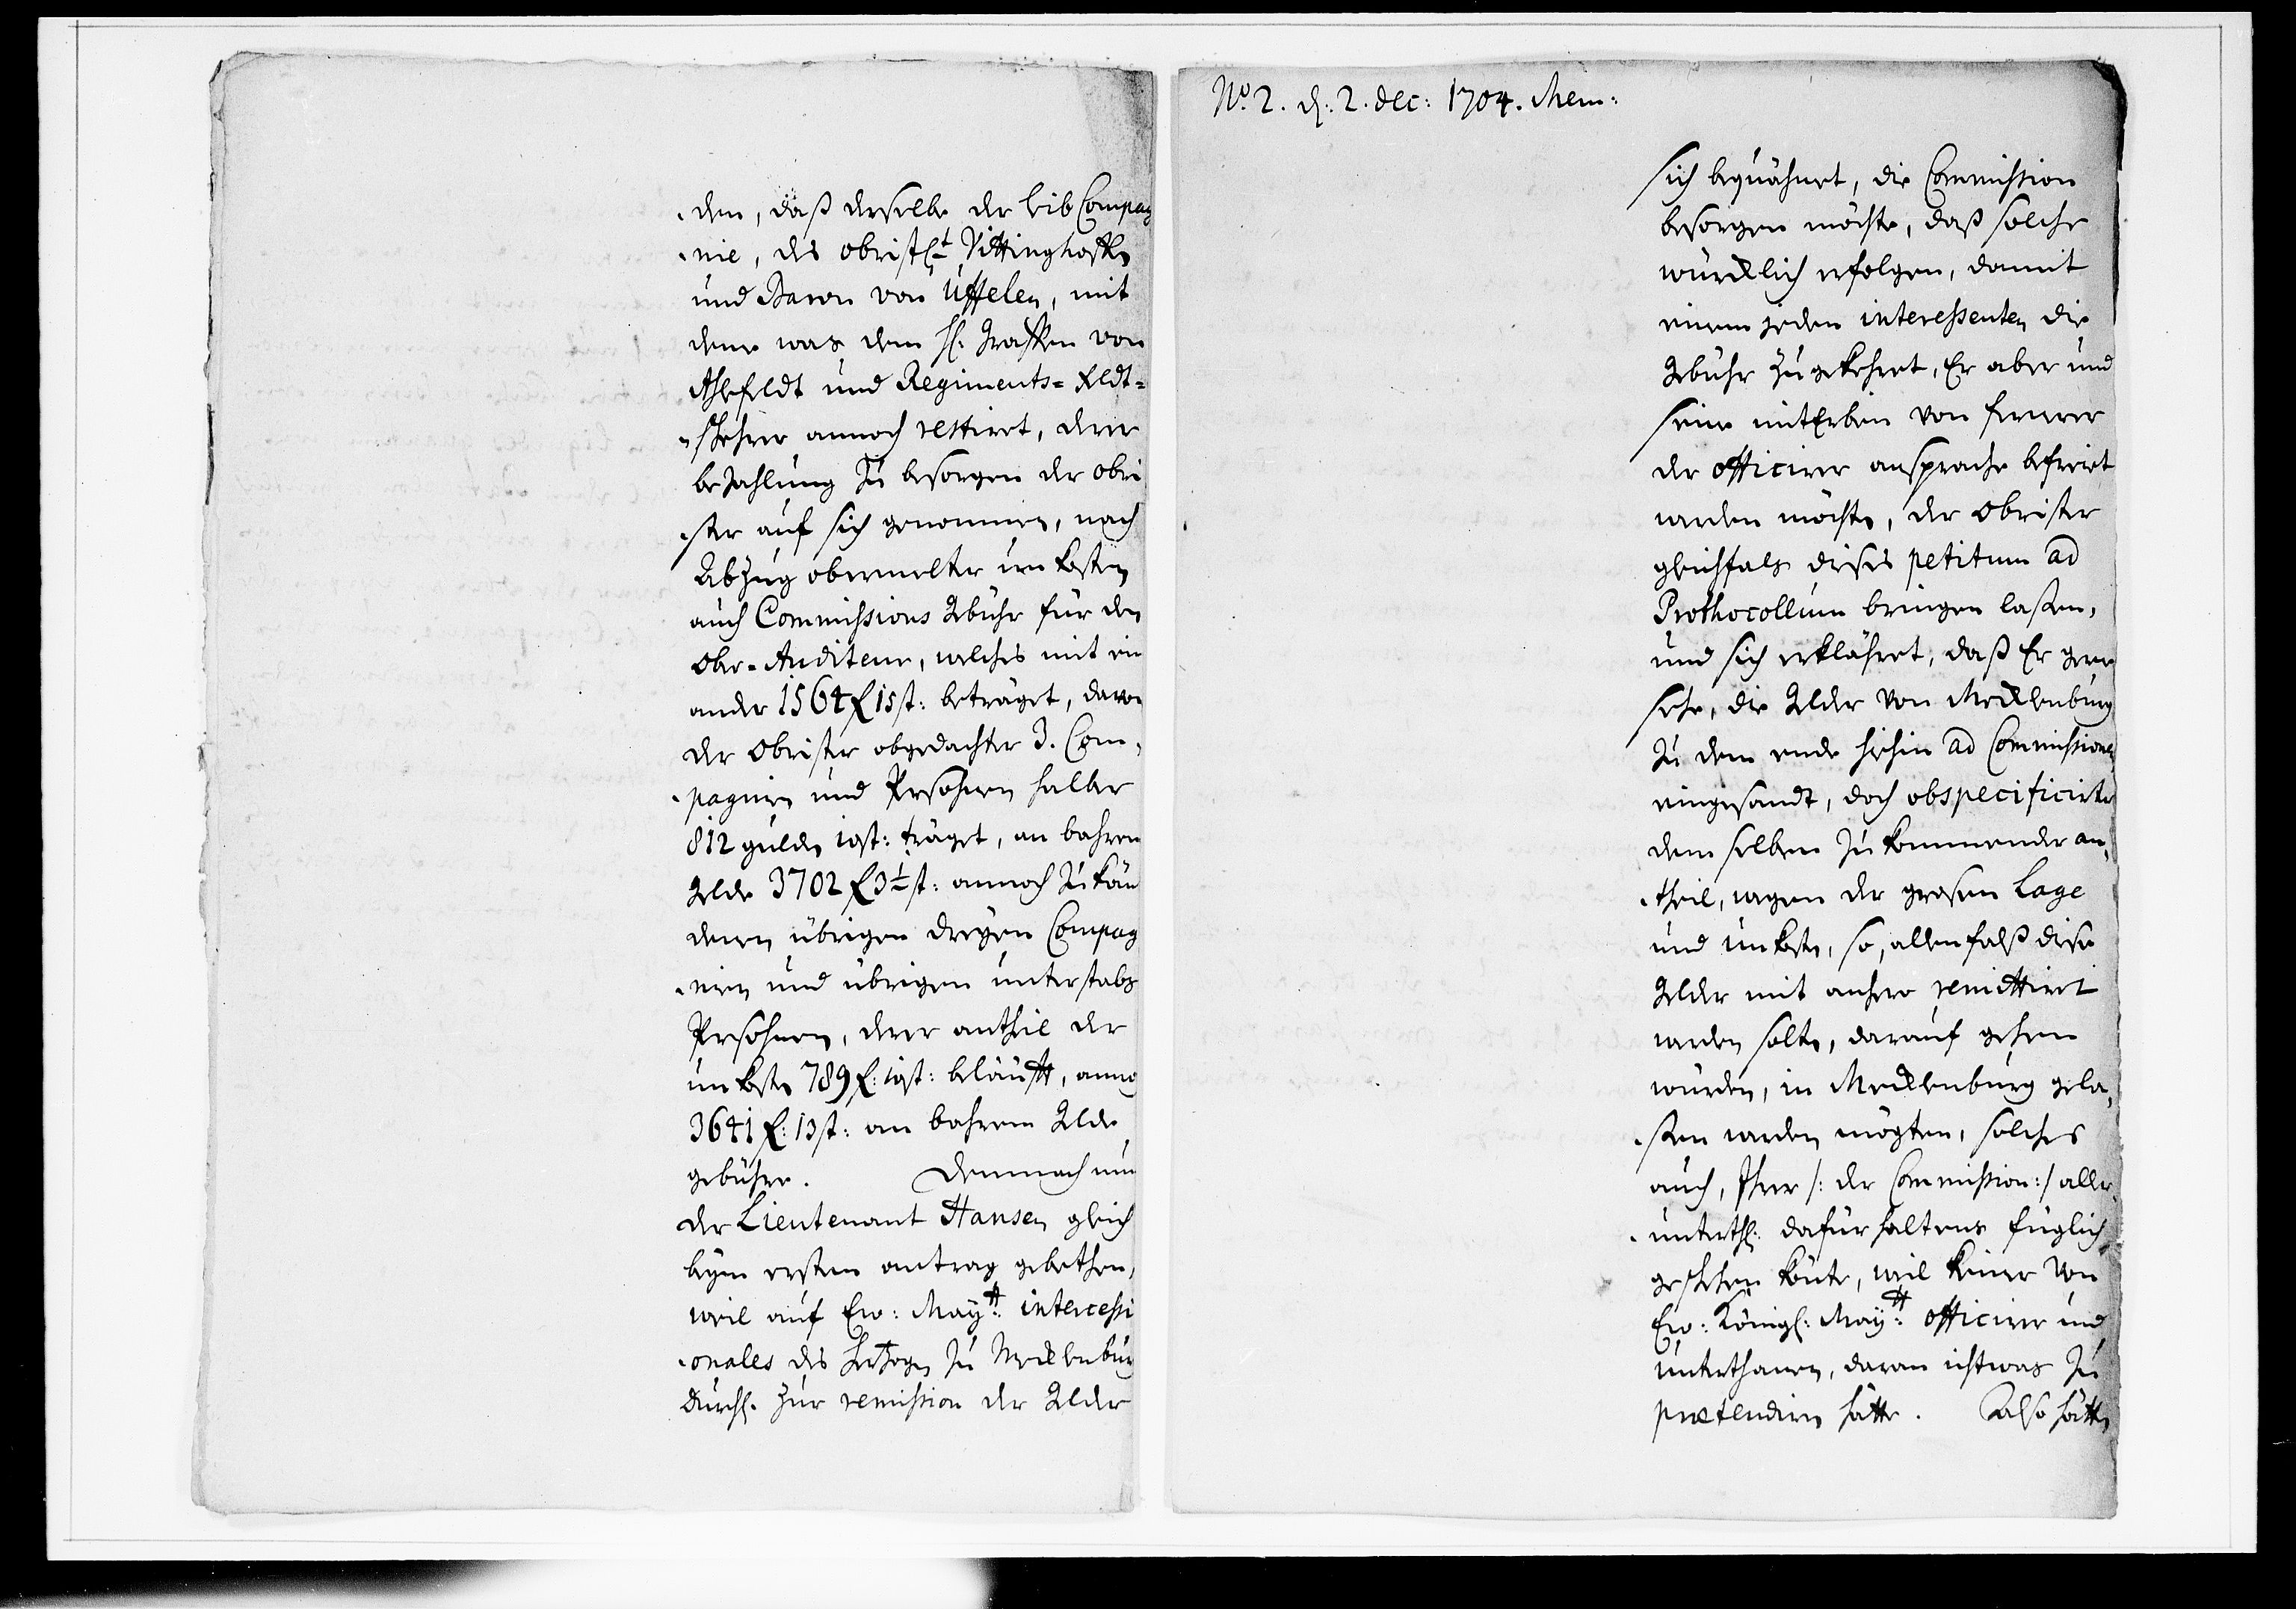 den, daß derselbe der leib Compag
nie, des obristlt Vittinghoffs
und Baron von Üffelen, mit
deme was dem H: Graffen von
Ahlefeldt und Regiments-Feldt-
scherer annoch restiret, derer
bezahlung zu besorgen der obri
ster auf sich genommen, nach
Abzug obermelter unkosten
auch Commissions Gebühr für den
Ober-Auditeur, welches mit ein
ander 1564 f 15 st: beträget, davon
der Obrister obgedachter 3. Com,
pagnien und Persohnen halber
812 gulden 19st: träget, an bahren
Gelde 3702 f 3½ st: annoch zu käm
denen übrigen dreyen Compag
nien und übrigen unterstabs
Persohnen, derer antheil der
unkosten 789 f: 19st: beläufft, annoch
3641 f: 13 st: an bahrem Gelde
gebühre. Demnach nun
der Lieutenant Hansen gleich
beym ersten antrag gebethen,
weil auf Ew: Maytt: intercessi
onales des Hertzogen zu Mecklenburg
Durchl. zur remission der Gelder
No. 2. d: 2. dec: 1704. Mem:
sich bequähmet, die Commission
besorgen möchte, daß solche
würcklich erfolgen, damit
einem jeden interessenten die
Gebühr zugekehret, Er aber und
seine mitErben von fernerer
der officirer ansprache befreiet
werden möchte, der Obrister
gleichfals dieses petitum ad
Prothocollum bringen lassen,
und sich erklähret, daß Er gern
sehe, die Gelder von Mecklenburg
zu dem ende hiehin ad Commissionem
eingesandt, doch obspecificirte
demselben zukommender an,
theil, wegen der grosen Lage
und unkosten, so, allenfalß diese
Gelder mit anhero remittiret
werden solten, darauf gehen
würden, in Mecklenburg gela,
ssen werden mögten, solches
auch, Ihrer /: der Commission:/ aller,
unterth: dafürhaltens füglich
geschehen könte, weil keiner von
Ew: Königl: Maytt: officirer und
unterthanen, daran ichtwas zu
prætendiren hätte. Also hätte